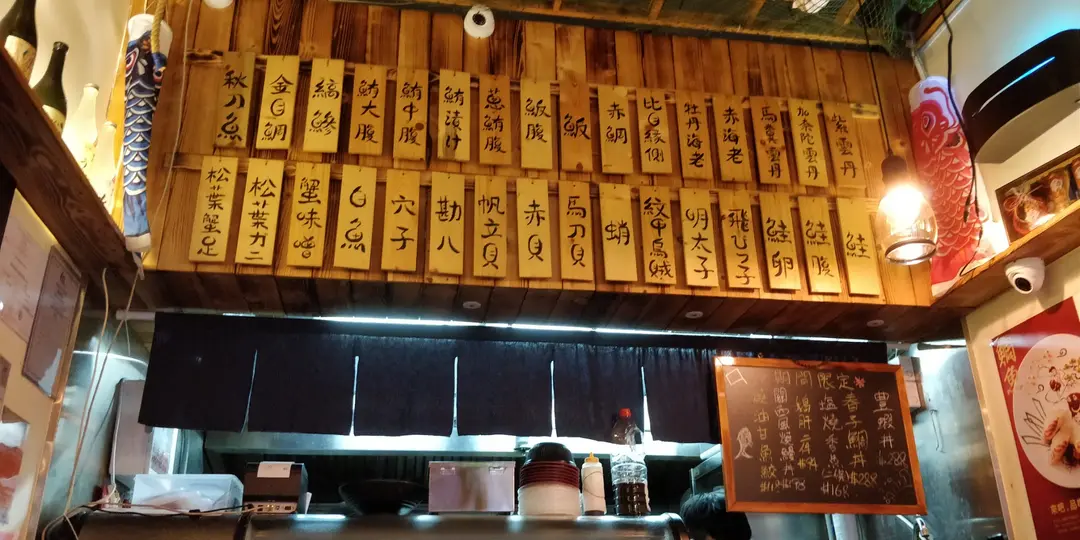 紫雲丹
加奈陀雲丹
馬糞雲丹
赤海老
牡丹海老
比目縁側
赤鯛
魬
魬腹
葱鮪腹
鮪漬け
鮪中腹
鮪大腹
縞鰺
金目鯛
秋刀魚
鮭
鮭腹
鮭卵
飛び子
明太子
紋甲烏賊
蛸
馬刀貝
赤貝
帆立貝
勘八
穴子
白魚
蟹味噌
松葉カニ
松葉蟹足
期間限定
豊蝦丼
春子鯛丼
塩燒